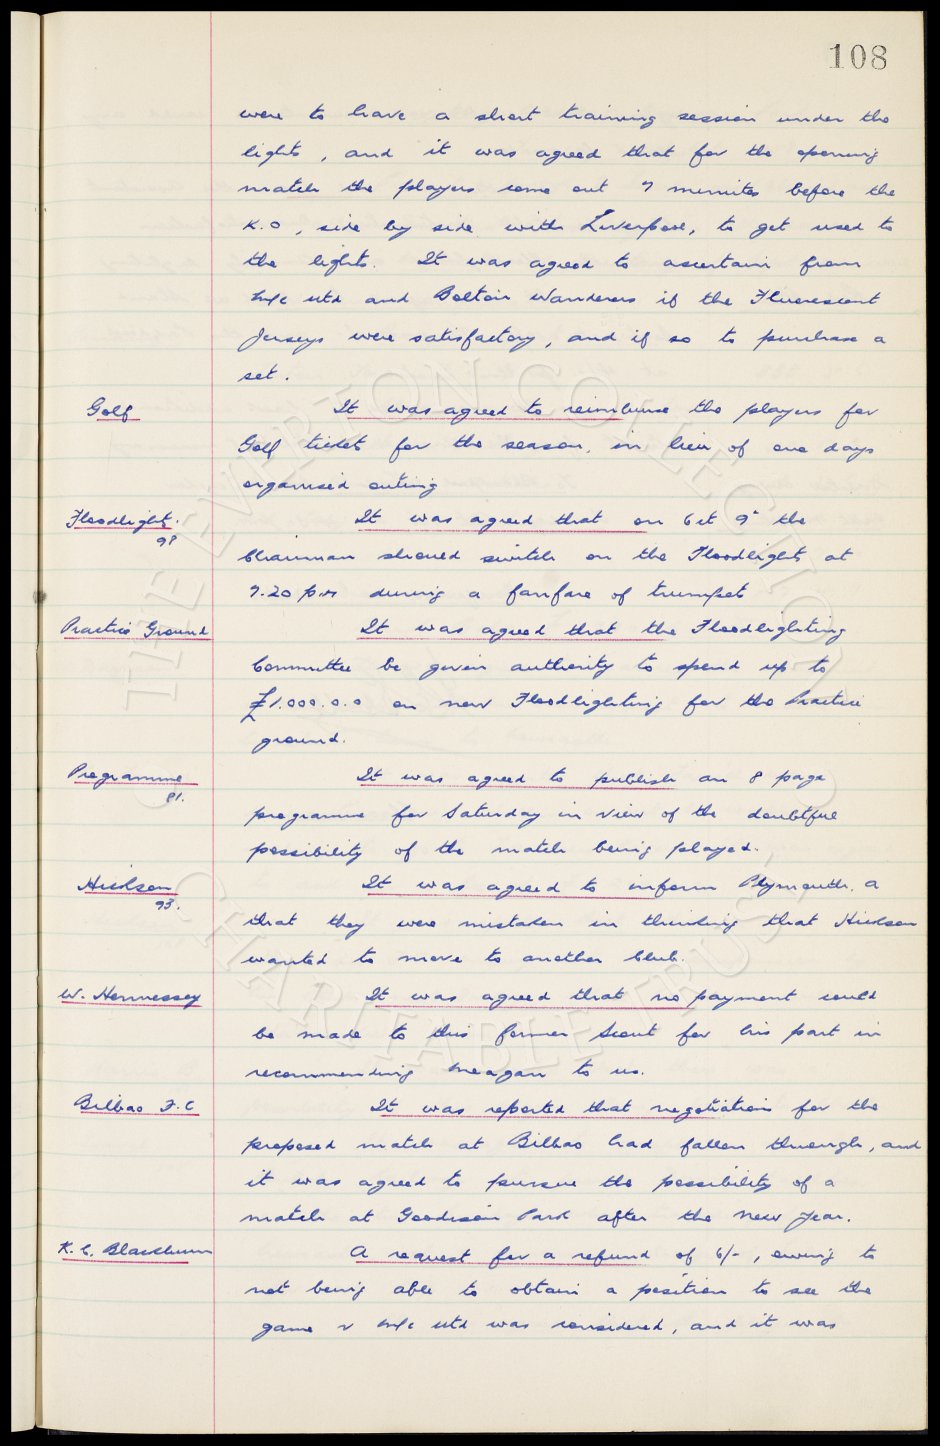 108
were to have a short training session under the
lights, and it was agreed that for the opening
match the players come out 7 minutes before the
K.O, side by side with Liverpool, to get used to
the lights. It was agreed to ascertain from
M/c Utd and Bolton Wanderers if the Fluorescent
Jerseys were satisfactory, and if so to purchase a
set.
Golf It was agreed to reimburse the players for
Golf tickets for the season, in lieu of one days
organised outing
Floodlights. It was agreed that on Oct 9th the
98
Chairman should switch on the Floodlights at
7.20 p.m during a fanfare of trumpets
Practice Ground It was agreed that the Floodlighting
Committee be given authority to spend up to
£1.000.0.0 on new Floodlighting for the Practice
ground.
Programme It was agreed to publish an 8 page
81.
programme for Saturday in view of the doubtful
possibility of the match being played.
Hickson It was agreed to inform Plymouth. A
93.
that they were mistaken in thinking that Hickson
wanted to move to another Club.
W. Hennessey It was agreed that no payment could
be made to this former Scout for his part in
recommending Meagan to us.
Bilbao F.C It was reported that negotiations for the
proposed match at Bilbao had fallen through, and
it was agreed to pursue the possibility of a
match at Goodison Park after the New Year.
K. C. Blackburn A request for a refund of 6/-, owing to
not being able to obtain a position to see the
game v M/c Utd was considered, and it was
THE EVERTON COLLECTION
CHARITABLE TRUST